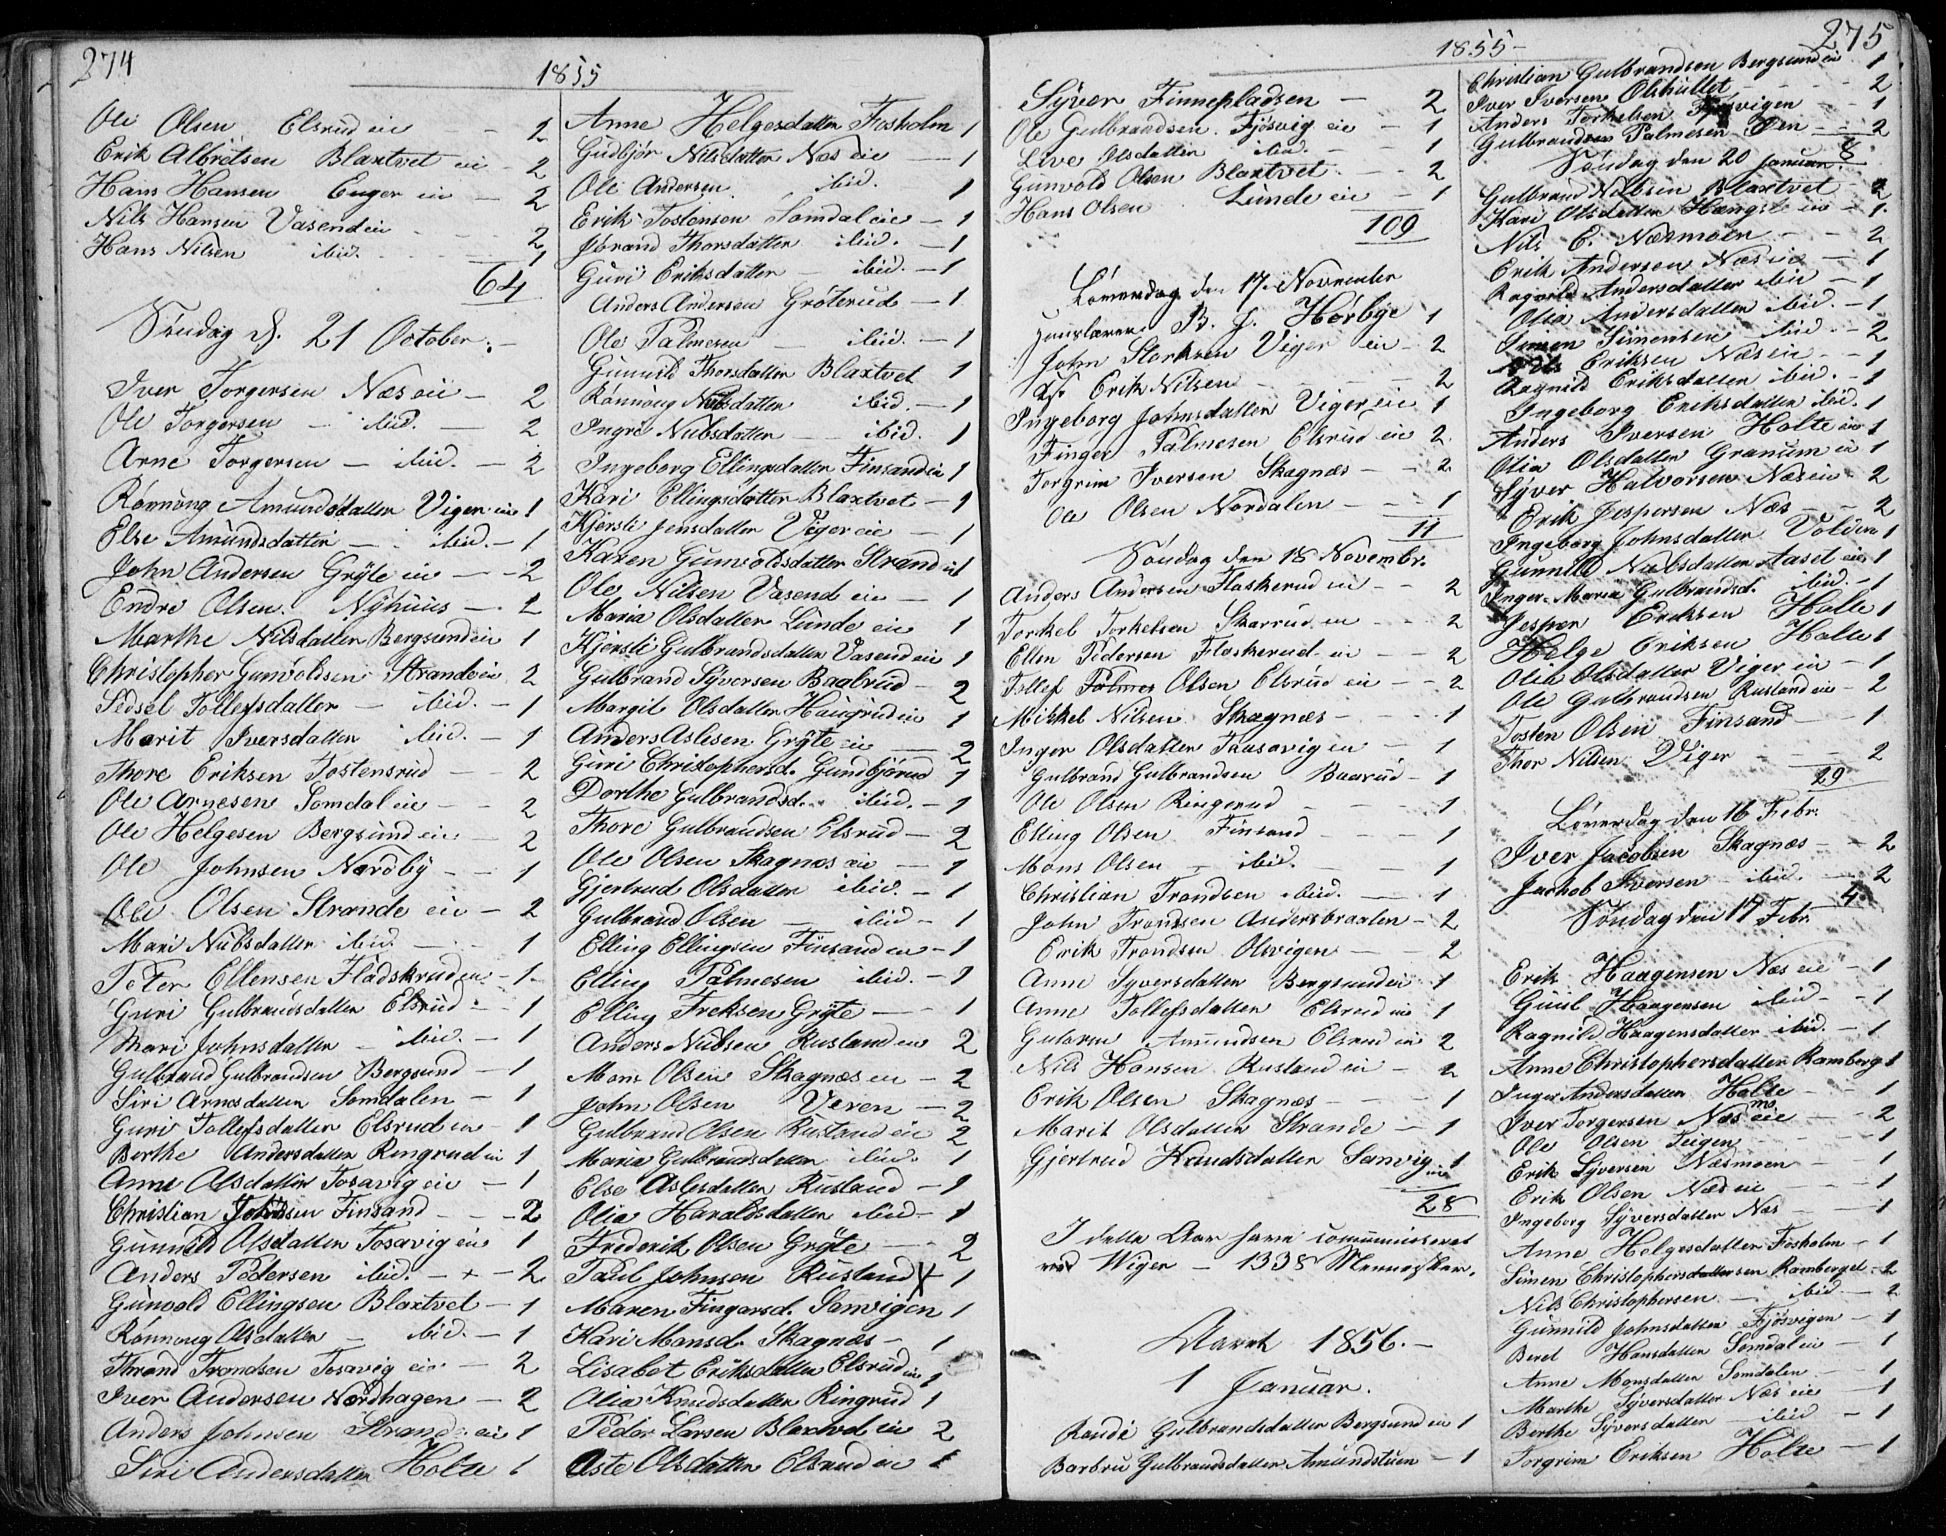 274
1855
Ole Olsen Elsrud eie - 2
Erik Albretsen Blaxtvet eie - 2
Hans Hansen Enger eie - 2
Nils Hansen Vasend eie - 2
Hans Nilsen ibid. - 1
64
Søndag d. 21 October. -
Iver Torgersen Næs eie - 2
Ole Torgersen - ibid. - 2
Arne Torgersen - ibid. - 2
Rønnoug Amundsdatter Viger eie 1
Else Amundsdatter - ibid. - 1
John Andersen Gryte eie - 2
Endre Olsen Nyhuus - 2
Marthe Nilsdatter Bergsund eie 1
Christopher Gunvoldsen Strande eie 2
Sidsel Tollefsdatter - ibid. - 1
Marit Iversdatter ibid. - 1
Thore Eriksen Tostensrud - 2
Ole Arnesen Somdal eie - 2
Ole Helgesen Bergsund eie - 2
Ole Johnsen Nordby - 1
Ole Olsen Strande eie - 2
Mari Nubsdatter ibid. - 1
Peter Ellensen Fladskrud eie - 1
Guri Gulbrandsdatter Elsrud - 1
Mari Johnsdatter - ibid. - 1
Gulbrand Gulbrandsen Bergsund - 1
Siri Arnesdatter Somdalen - 1
Guri Tollefsdatter Elsrud eie - 1
Berthe Andersdatter Ringrud eie 1
Anne Olsdatter Tosavig eie - 1
Christian Johnsen Finsand - 2
Gunnild Olsdatter Tosavig eie 1
Anders Pedersen ibid. - + - 2
Gunvold Ellingsen Blaxtvet - 1
Rønnoug Olsdatter - ibid. - 1
Thrond Trondsen Tosavig eie - 2
Iver Andersen Nordhagen - 2
Anders Johnsen Strande eie 1
Siri Andersdatter Holte 1
Anne Helgesdatter Fosholm 1
Gudbjør Nilsdatter Næs eie - 1
Ole Andersen ibid. 1
Erik Tostensen Somdal eie - 1
Jørand Thorsdatter ibid. - 1
Guri Eriksdatter - ibid. - 1
Anders Andersen Grøterud - 1
Ole Palmesen - ibid. - 1
Gunnild Thorsdatter Blaxtvet 1
Rønnoug Nubsdatter ibid. - 1
Ingri Nubsdatter - ibid. 1
Ingeborg Ellingsdatter Finsand eie 1
Kari Ellingsdatter Blaxtvet - 1
Kjersti Jensdatter Viger eie - 1
Karen Gunvoldsdatter Strand eie 1
Ole Nilsen Vasend eie - 1
Maria Olsdatter Lunde eie 1
Kjersti Gulbrandsdatter Vasend eie 1
Gulbrand Syversen Baalrud - 2
Margit Olsdatter Haugrud eie 1
Anders Aslesen Gryte eie - 2
Guri Christophersd. Gundbjørud 1
Dorthe Gulbrandsd. ibid. - 1
Thore Gulbrandsen Elsrud - 2
Ole Olsen Skagnæs eie - 1
Gjertrud Olsdatter ibid. - 1
Gulbrand Olsen - ibid - 1
Elling Ellingsen Finsand eie - 1
Elling Palmesen ibid. - 1
Elling Freksen Gryte - 1
Anders Nubsen Rusland eie 2
Mons Olsen Skagnæs eie - 2
John Olsen Veren - 2
Gulbrand Olsen Rusland eie 2
Maria Gulbrandsdatter ibid. 1
Else Aslesdatter Rusland - 1
Olia Haraldsdatter ibid - 1
Frederik Olsen Gryte - 2
Paul Johnsen Rusland 1
Maren Fingarsd. Sonvigen 1
Kari Monsd. Skagnæs - 1
Lisabet Eriksdatter Elsrud eie 1
Olia Knudsdatter Ringrud 1
Peder Larsen Blaxtvet eie 2
Aste Olsdatter Elsrud eie 1
1855 -
275
Syver Finnepladsen - 2
Ole Gulbrandsen Fjøsvig eie - 1
Live Olsdatter ibid. - 1
Gunvold Olsen Blaxtvet. - 2
Hans Olsen Lunde eie - 1
109
Løverdag den 17. November
B. J. Hørbye 1
John Storksen Viger eie - 2
Erik Nilsen - 2
Ingeborg Johnsdatter Viger eie 1
Finger Palmesen Elsrud eie 2
Torgrim Iversen Skagnæs - 2
Ole Olsen Nordalen - 1
11
Søndag den 18 Novembr.
Anders Andersen Flaskerud eie - 2
Torkel Torkelsen Skarrud eie - 2
Ellen Pedersen Flaskerud eie - 2
Tollef Palmes Olsen Elsrud eie - 2
Mikkel Nilsen Skagnæs - 1
Inger Olsdatter Taasavig eie - 1
Gulbrand Gulbrandsen Baarud - 1
Ole Olsen Ringerud - 1
Elling Olsen Finsand - 1
Mons Olsen - ibid. - 1
Christian Trondsen ibid. - 1
John Trondsen Andersbraaten - 2
Erik Trondsen Olsvigen - 2
Anne Syversdatter Bergsund eie 1
Anne Tollefsdatter Elsrud eie 1
Gutorm Amundsen Elsrud eie 2
Nils Hansen Rusland eie - 2
Erik Olsen Skagnæs - 1
Marit Olsdatter Strande - 1
Gjertrud Knudsdatter Sanvig eie 1
28
I dette Aar have communiceret
ved Wiger - 1338 Mennesker.
Aaret 1856. -
1 Januar.
Randi Gulbrandsdatter Bergsund eie 1
Barbru Gulbrandsdatter Amundstuen - 1
Christian Gulbrandsen Bergsund eie 1
Iver Iversen Olshullet - 2
Anders Torkelsen - 1
Gulbrandsen Palmesen Øen - 2
8
Søndag den 20 Januar.
Gulbrand Nilsen Blaxtvet - 2
Kari Olsdatter Hængsle eie - 1
Nils E. Næsmoen - 2
Erik Andersen Næs eie - 1
Ragnild Andersdatter ibid - 1
Olia Andersdatter ibid. - 1
Simen Simensen - ibid. - 2
Nils Eriksen Næs eie - 1
Ragnild Eriksdatter ibid. - 1
Ingeborg Eriksdatter ibid. 1
Anders Iversen Holte eie 1
Olia Olsdatter Granum eie 1
Syver Halvorsen Næs eie - 2
Erik Jespersen Næs - 2
Ingeborg Johnsdatter Volden 1
Gunnild Nubsdatter Aaset eie 1
Inger Maria Gulbrandsd. ibid. - 1
Jesper Eriksen Holte 1
Helge Eriksen Holte 1
Olia Olsdatter Viger eie - 1
Ole Gulbrandsen Rusland eie - 2
Tosten Olsen Finsand - 1
Thor Nilsen Viger - 2
29
Løverdag den 16 Febr.
Iver Jacobsen Skagnæs - 2
Jachob Iversen ibid. - 2
4
Søndag den 17 Febr.
Erik Haagensen Næs eie - 1
Guul Haagensen ibid - 1
Ragnild Haagensdatter ibid. - 1
Anne Christophersdatter Ramberg 1
Inger Andersdatter Holte - 1
Iver Torgersen Næsmo eie - 2
Ole Olsen Teigen - 1
Erik Syversen Næsmoen - 1
Erik Olsen Næs eie - 1
Ingeborg Syversdatter Næs - 1
Anne Helgesdatter Fosholm - 1
Simen Christophersen Ramberget - 2
Nils Christophersen - ibid - 2
Gunnild Johnsdatter Fjøsvigen - 1
Beret Hansdatter Somdal eie - 1
Anne Monsdatter Somdalen - 1
Marthe Syversdatter Næs eie - 1
Berthe Syversdatter - ibid - 1
Torgrim Eriksen Holte - 1